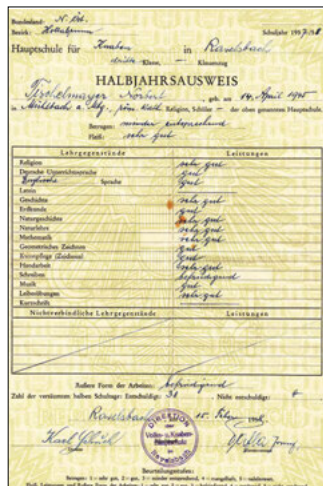 Bundesland: N. Öst.
Bezirk: Hollabrunn Schuljahr 1957/58
Hauptschule für Knaben in Ravelsbach
dritte Klasse, — Klassenzug
HALBJAHRSAUSWEIS
Tischelmayer Norbert, geb. am 14. April 1945
in Mühlbach a. Mbg., röm. kath. Religion, Schüler — der oben genannten Hauptschule.
Betragen: minder entsprechend
Fleiß: sehr gut
Lehrgegenstände Leistungen
Religion sehr gut
Deutsche Unterrichtssprache gut
Englische Sprache gut
Latein
Geschichte sehr gut
Erdkunde gut
Naturgeschichte sehr gut
Naturlehre sehr gut
Mathematik sehr gut
Geometrisches Zeichnen gut
Kunstpflege (Zeichnen) gut
Handarbeit sehr gut
Schreiben befriedigend
Musik gut
Leibesübungen sehr gut
Kurzschrift
Nichtverbindliche Lehrgegenstände Leistungen
Äußere Form der Arbeiten: befriedigend
Zahl der versäumten halben Schultage: Entschuldigt: 31 Nicht entschuldigt:
Ravelsbach 15. Feber 1958
DIREKTION
Volks- u. Knaben-
Hauptschule
Ravelsbach
Karl
Beurteilungsstufen: